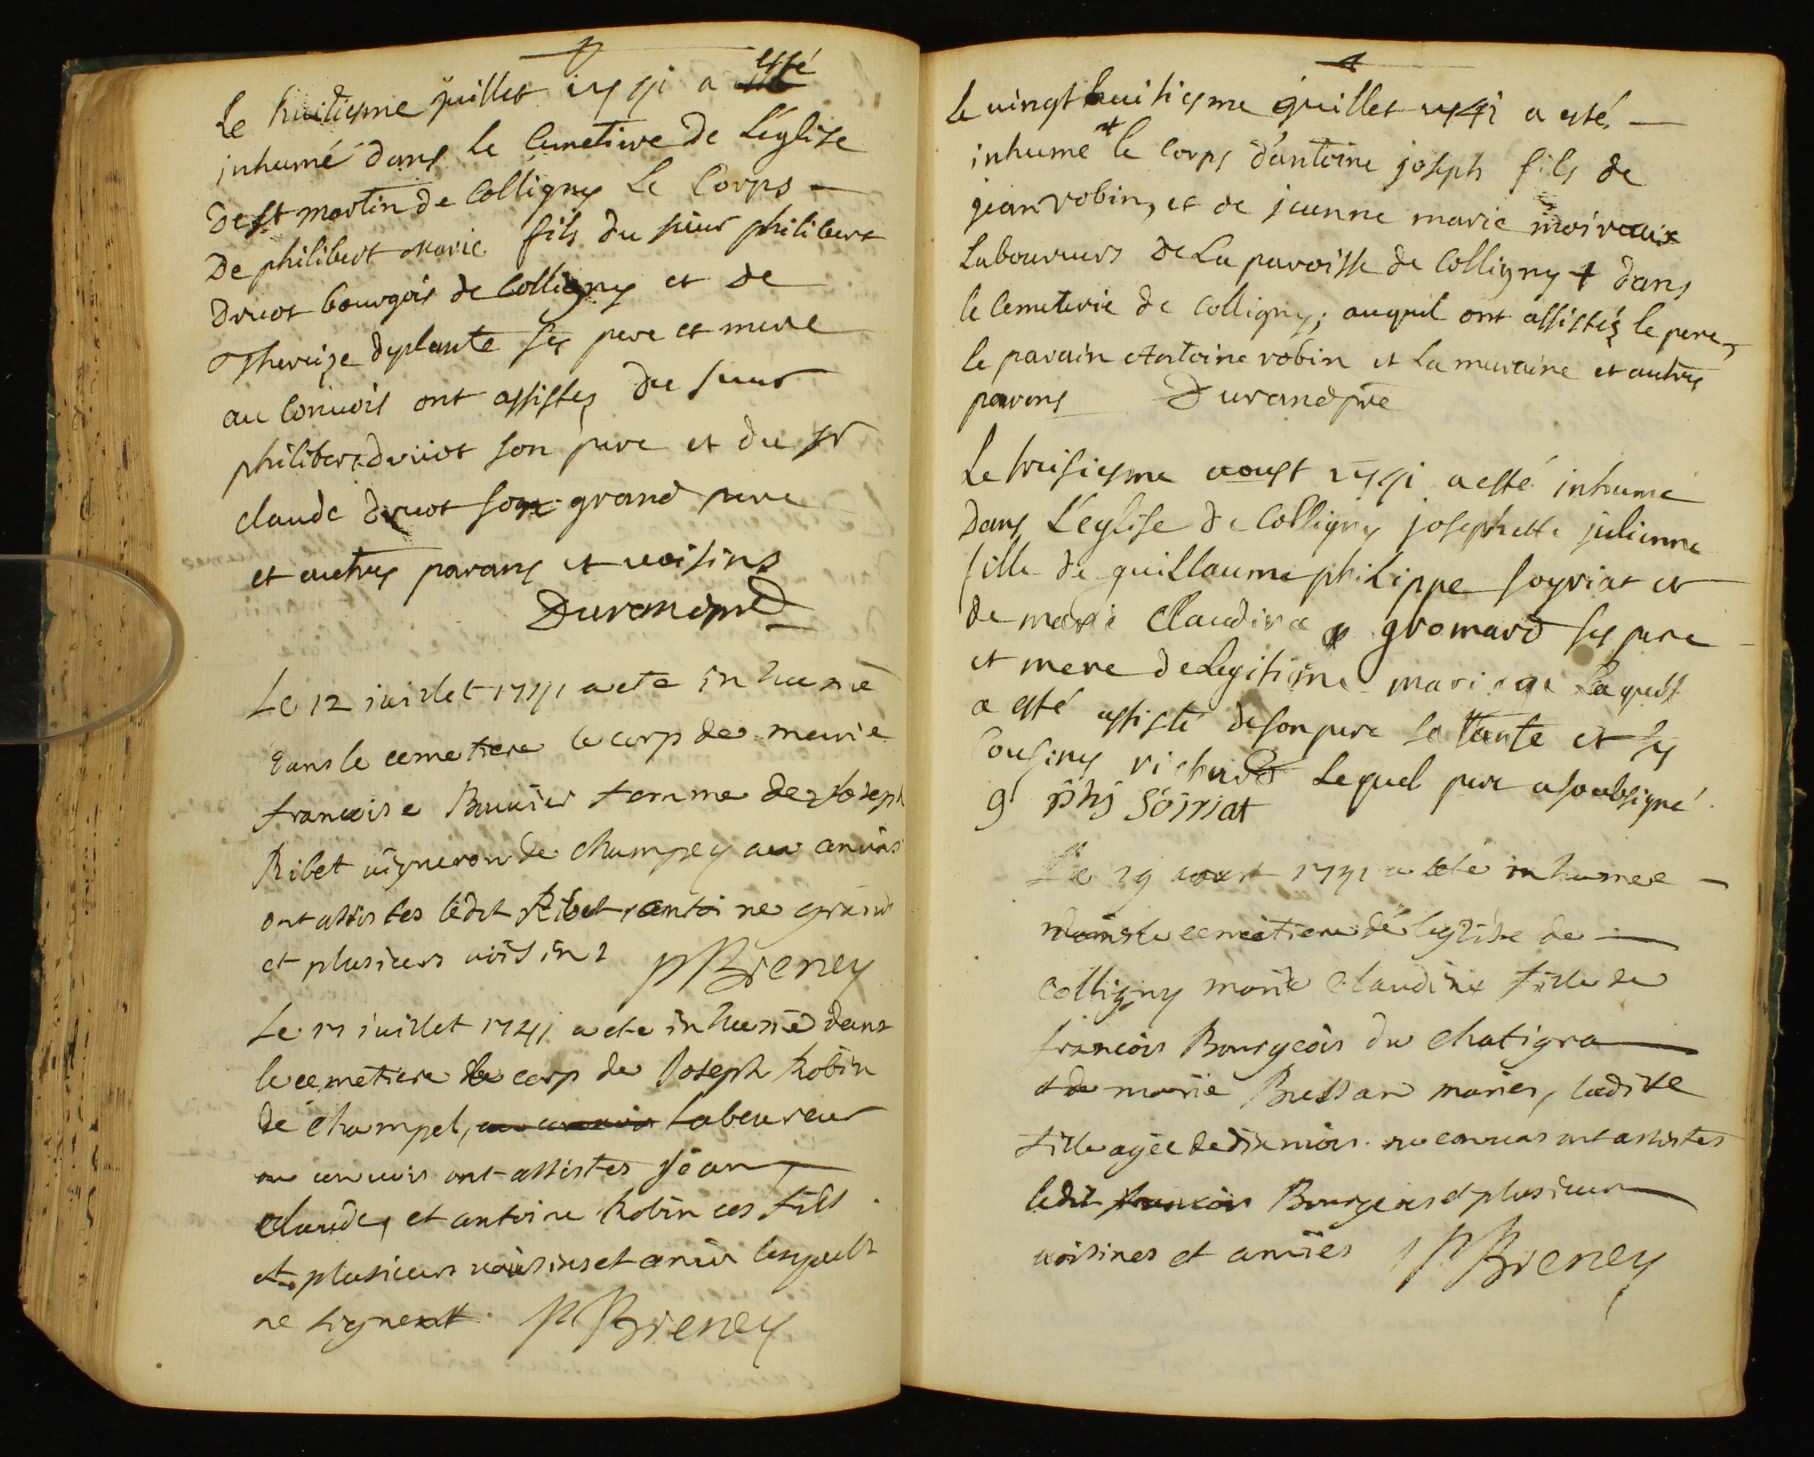 Le huitiesme juillet 1741 a esté
inhumé dans le Cimetiere de L'église
de St martin de Colligny Le Corps
De philibert marie fils du sieur philibert
Druot bourgois de Colligny et de
Thereize deplante ses pere et mere
au Convois ont assistez du sieur
philibert druot son pere et du sr
claude druot son grand pere
et autres parans et voisins
Durand pre
Le 12 juillet 1741 a ete inhumé
dans le cemetiere le corp de marie
francoise Bouvier femme de Joseph
Ribet vigneron de champey au convois
ont assistes ledit Ribet antoine grand
et plusieurs voisins P Brieney
Le 17 juillet 1741 a ete inhumé dans
le cemetiere le corp de Joseph Robin
de champel, laboureur
au convois ont assistes Jean
claude, et antoine Robin ces fils
et plusieurs voisins et amis lesquels
ne signent. P Brieney
Le vingt huitiesme juillet 1741 a esté
inhumé + le Corps d'antoine joseph fils de
jean robin, et de jeanne marie moiraux
Laboureurs De La paroisse de Colligny + dans
le Cemeterie de Colligny; auquel ont assistéz le pere,
le parain Antoine robin et La maraine et autres
parens Durand pre
Le troisiesme aoust 1741 a esté inhumé
Dans L'eglise de Colligny josephette julienne
fille de guillaume philippe soyriat et
de marie Claudine gromard ses pere
et mere de Legitime mariage Laquelle
a esté assisté de son pere sa tante et ses
Cousins richard Lequel pere a soubsigné.
g phs Soirriat
Le 29 aoust 1741 a été inhumee
dans le cemetiere de leglise de
Colligny marie Claudine fille de
francois Bourgeois du chatigna
et de marie Bressan maries, ladite
fille agée de dix mois. au convois ont assistes
ledit francois Bourgeois et plusieurs
voisines et amies P Brieney